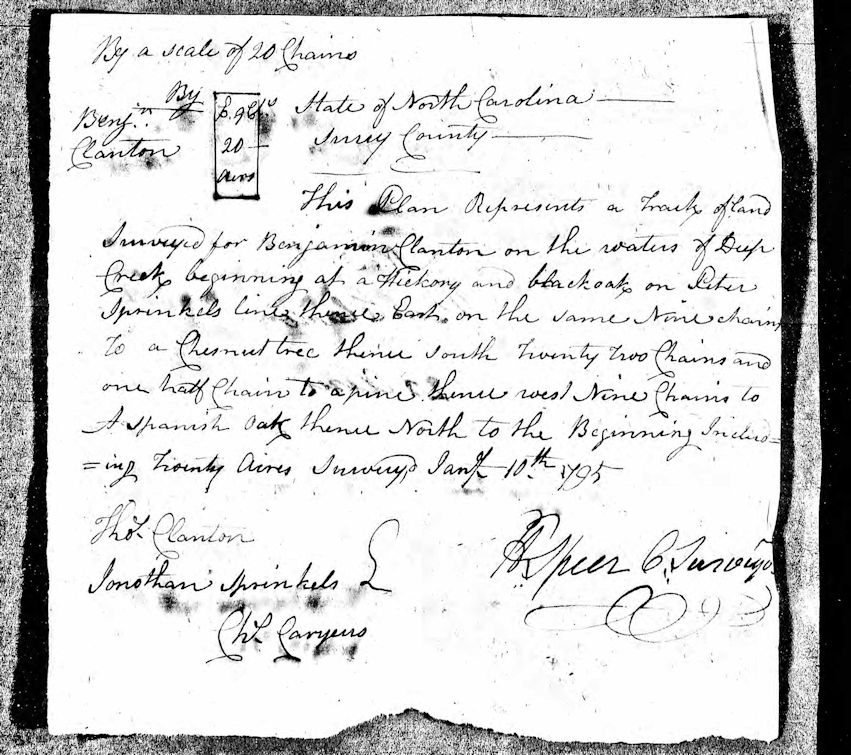 By a scale of 20 Chains
Benjn. By
Clanton
E. 9 Chs
20
Acres
State of North Carolina
Surry County
This Plan Represents a Tract of land
Surveyd for Benjamin Clanton on the waters of Deep
Creek beginning at a Hickory and blackoak on Peter
Sprinkels line thence East on the same Nine chains
To a Chesnut tree thence south Twenty two Chains and
one half Chain to a pine thence west Nine Chains to
A spanish Oak thence North to the Beginning Includ=
=ing Twenty Acres Surveyd Jany 10th 1795
Thos. Clanton
Jonothan Sprinkels
Chs. Caryers
Speer C. Surveyo